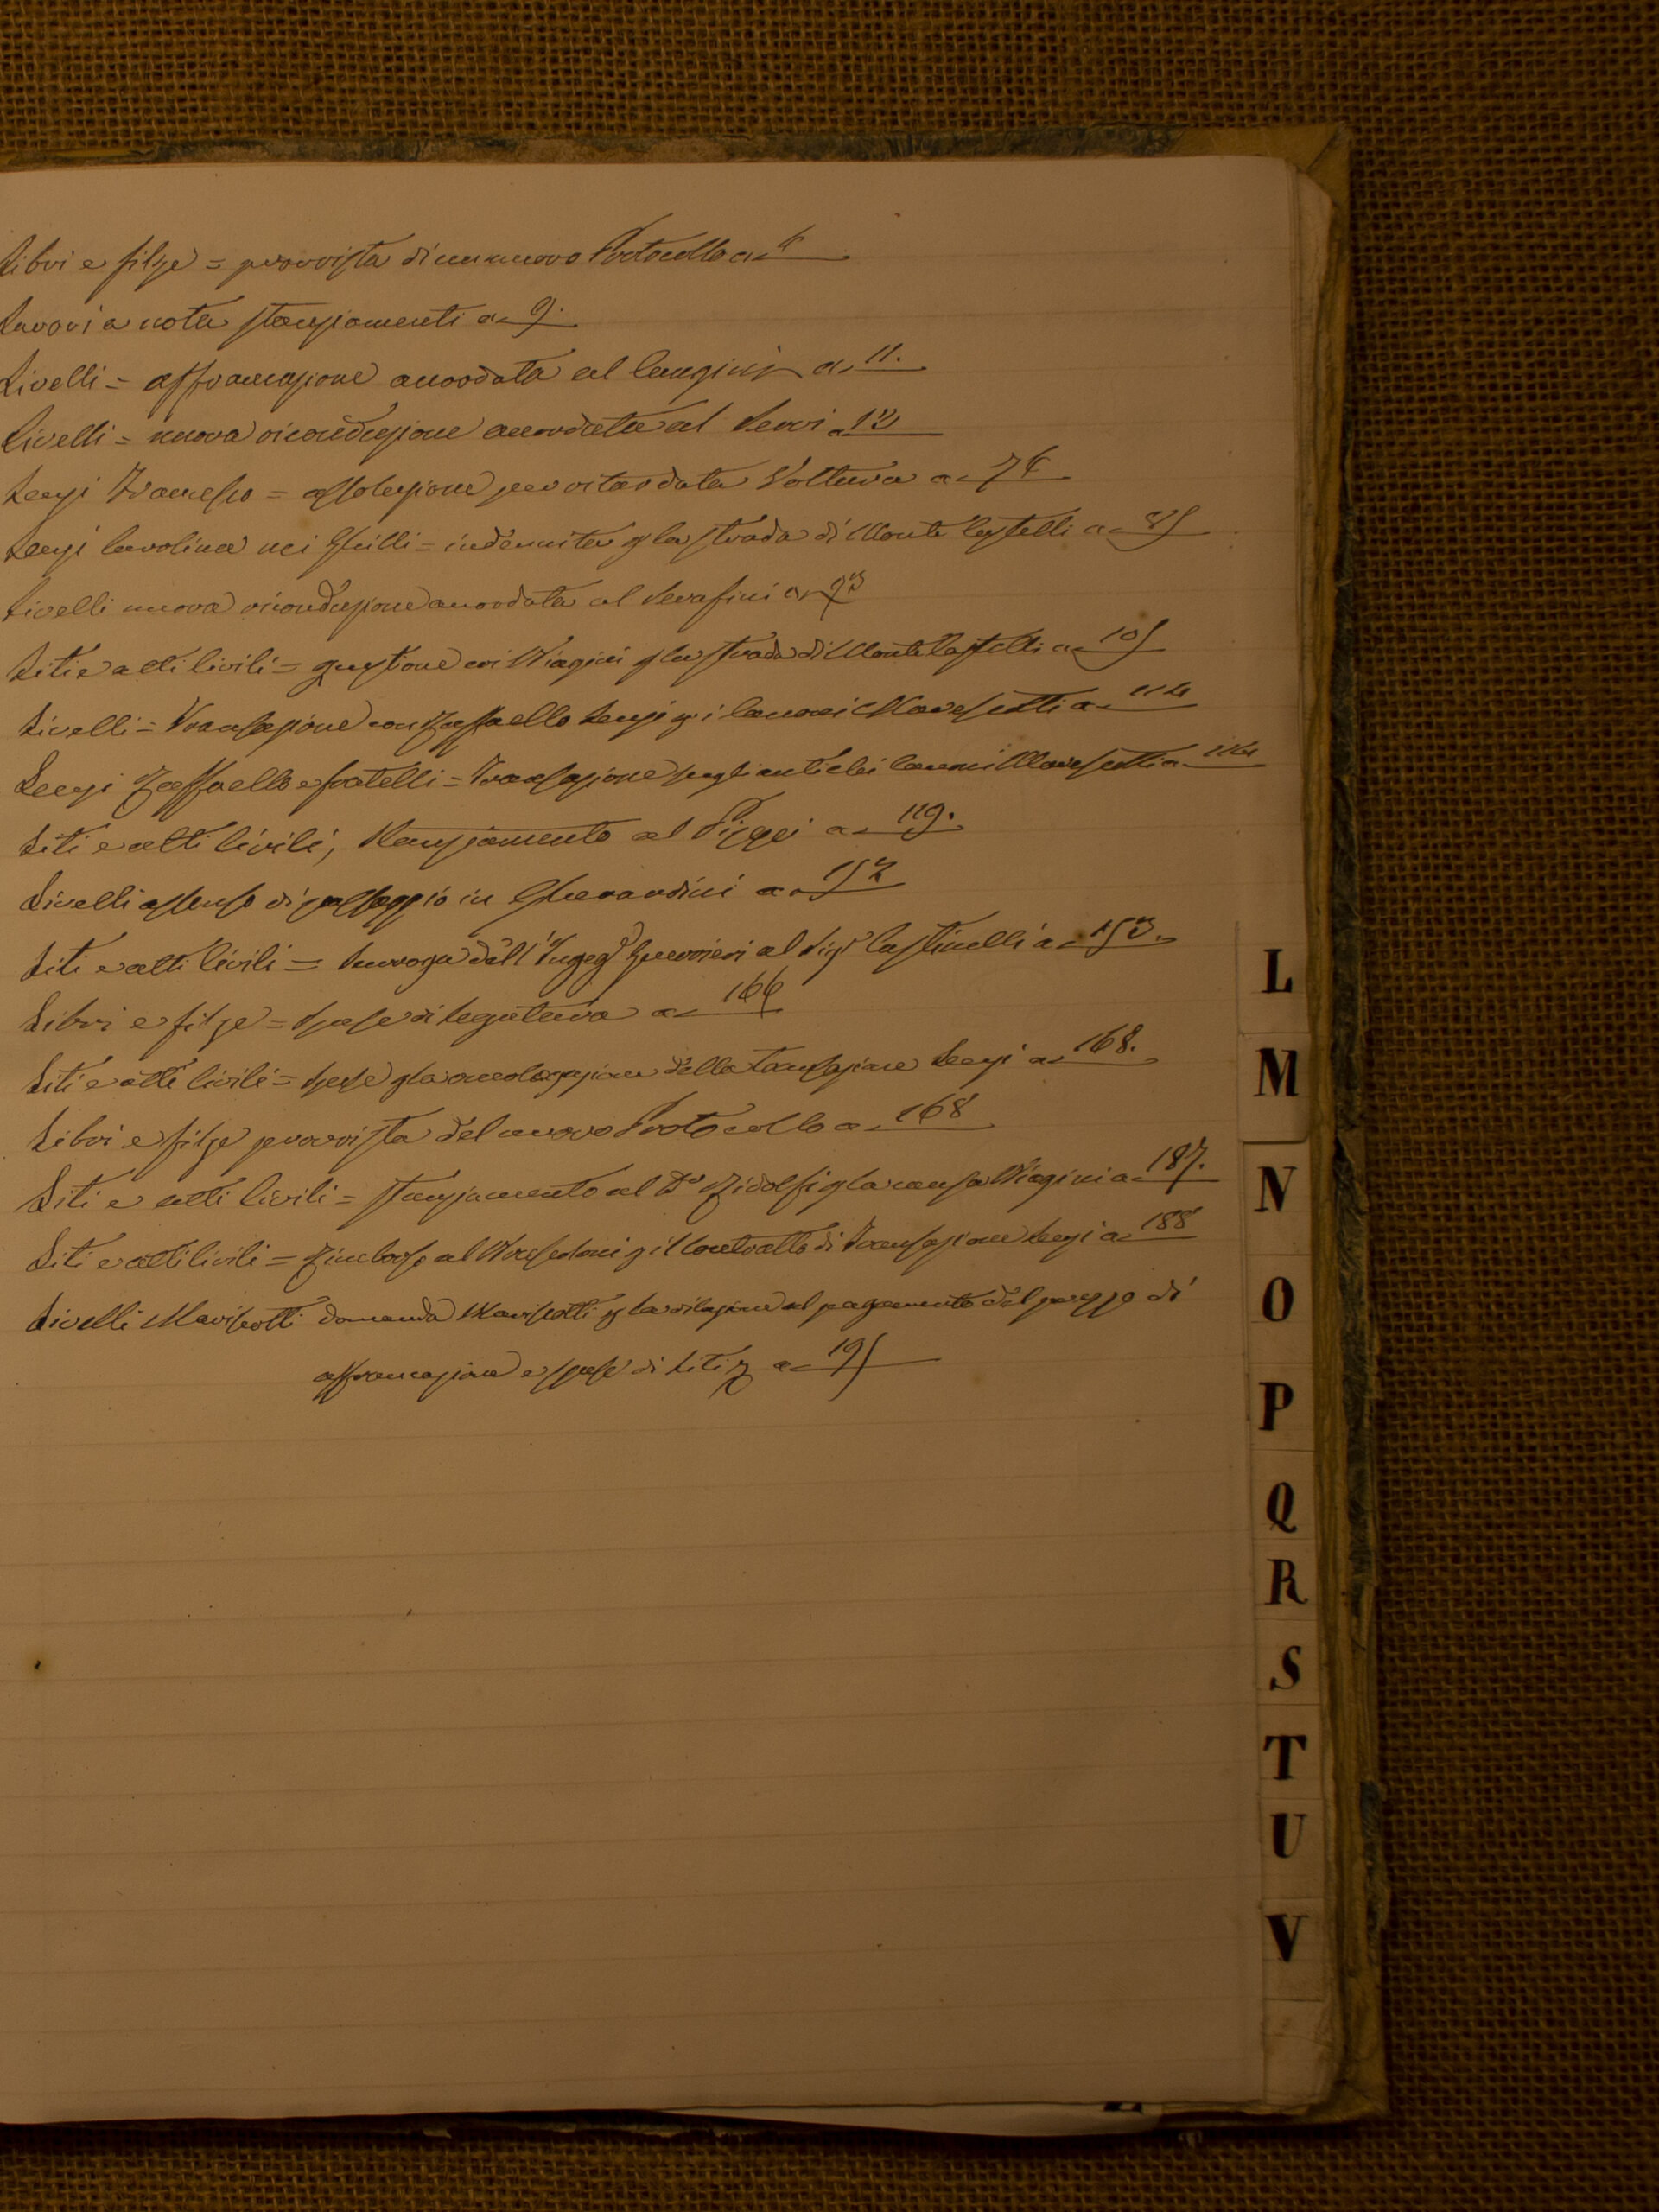 Libri e filze = provvista di un nuovo Protocollo a 4
Lavori a nota stanziamenti a 9.
Livelli = affrancazione accordata al Cangini a 11.
Livelli = nuova riconduzione accordata al Serri a 12
Lenzi Francesco = assoluzione per ritardata Voltura a 74
Lenzi Carolina nei Grilli = indennità p la strada di Monte Castelli a 85
Livelli nuova riconduzione accordata al Serafini a 93
Liti e atti Civili = questione coi Biagini p la strada di Monte Castelli a 105
Livelli = Transazione con Raffaello Lenzi p i Canoni Marescotti a 114
Lenzi Raffaello e fratelli = Transazione sugli antichi Canoni Marescotti a 114
Liti e atti Civili, Stanziamento al Pizzi a 119.
Livelli assenso di passaggio in Gherardini a 152
Liti e atti Civili = Surroga dell'Ingeg. Guerrieri al Sigr Castinelli a 153.
Libri e filze = Spese di legatura a 166
Liti e atti Civili = Spese p la omologazione della transazione Lenzi a 168.
Libri e filze provvista del nuovo Protocollo a 168
Liti e atti Civili = stanziamento al Dr Ridolfi p la causa Biagini a 187.
Liti e atti Civili = Rimborso al p il Contratto di Transazione Lenzi a 188
Livelli Mariscotti domanda Mariscotti p la dilazione al pagamento del prezzo di
affrancazione e spese di Liti a 195
L
M
N
O
P
Q
R
S
T
U
V